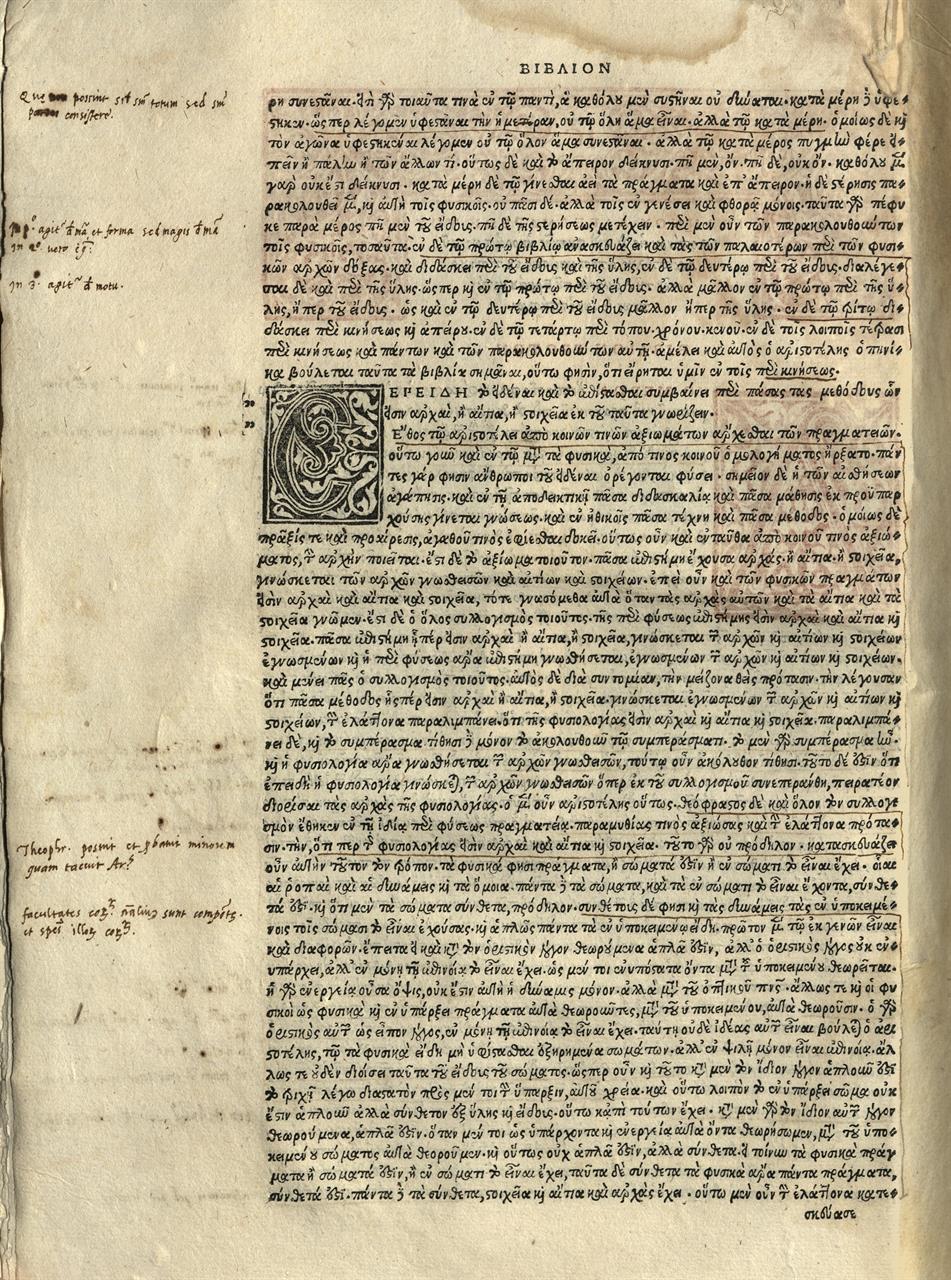 ΒΙΒΛΙΟΝ
ρη συνεστάναι. ἔτι γὰρ τοιαῦτα τινὰ ἐν τῷ παντὶ, ἃ καθόλου μὲν συστῆναι οὐ δύναται. κατὰ μέρη δὲ ὑφέ-
στηκεν. ὥσπερ λέγομεν ὑφεστάναι τὴν ἡμετέραν, οὐ τῷ ὅλη ἅμα εἶναι. ἀλλὰ τῷ κατὰ μέρη. ὁμοίως δὲ καὶ
τὸν ἀγῶνα ὑφεστηκέναι λέγομεν οὐ τῷ ὅλον ἅμα συνεστάναι. ἀλλὰ τῷ κατὰ μέρος πυγμὴν φέρε εἰ-
πεῖν ἢ πάλην ἢ τῶν ἄλλων τί. οὕτως δὲ καὶ τὸ ἄπειρον δείκνυσι πῆ μὲν, ὄν. πῆ δὲ, οὐκ ὄν. καθόλου μὲν
γὰρ οὐκ ἔστι δείκνυσι. κατὰ μέρη δὲ τῷ γίνεσθαι ἀεὶ τὰ πράγματα καὶ ἐπ' ἄπειρον. ἡ δὲ στέρησις πα-
ρακολουθεῖ μὲν, καὶ αὐτὴ τοῖς φυσικοῖς. οὐ πᾶσι δὲ. ἀλλὰ τοῖς ἐν γενέσει καὶ φθορᾷ μόνοις. ταῦτα γὰρ πέφυ
κε παρὰ μέρος πῆ μὲν τοῦ εἴδους. πῆ δὲ τῆς στερήσεως μετέχειν. περὶ μὲν οὖν τῶν παρακολουθούντων
τοῖς φυσικοῖς, τοσαῦτα. ἐν δὲ τῷ πρώτῳ βιβλίῳ ἀνασκευάζει καὶ τὰς τῶν παλαιοτέρων περὶ τῶν φυσι-
κῶν ἀρχῶν δόξας. καὶ διδάσκει περὶ τοῦ εἴδους καὶ τῆς ὕλης, ἐν δὲ τῷ δευτέρῳ περὶ τοῦ εἴδους. διαλέγε-
ται δὲ περὶ τῆς ὕλης. ὥσπερ καὶ ἐν τῷ πρώτῳ περὶ τοῦ εἴδους. ἀλλὰ μᾶλλον ἐν τῷ πρώτῳ περὶ τῆς ὕ-
λης, ἤπερ τοῦ εἴδους. ὡς καὶ ἐν τῷ δευτέρῳ περὶ τοῦ εἴδους μᾶλλον ἤπερ τῆς ὕλης. ἐν δὲ τῷ τρίτῳ δι-
δάσκει περὶ κινήσεως καὶ ἀπείρου. ἐν δὲ τῷ τετάρτῳ περὶ τόπου. χρόνου. κενοῦ. ἐν δὲ τοῖς λοιποῖς τέτρασι
περὶ κινήσεως καὶ πάντων καὶ τῶν παρακολουθούντων αὐτῇ. ἀμέλει καὶ αὐτὸς ὁ ἀριστοτέλης ὁπηνί-
κα βούλεται ταῦτα τὰ βιβλία σημᾶναι, οὕτω φησὶν, ὅτι εἴρηται ἡμῖν ἐν τοῖς περὶ κινήσεως.
ΕΠΕΙΔΗ τὸ εἰδέναι καὶ τὸ ἐπίστασθαι συμβαίνει περὶ πάσας τὰς μεθόδους ὧν
εἰσὶν ἀρχαὶ, ἢ αἴτια, ἢ στοιχεῖα ἐκ τοῦ ταῦτα γνωρίζειν.
Ἔθος τῷ ἀριστοτέλει ἀπὸ κοινῶν τινῶν ἀξιωμάτων ἄρχεσθαι τῶν πραγματειῶν.
οὕτω γοῦν καὶ ἐν τῷ μετὰ τὰ φυσικὰ, ἀπό τινος κοινοῦ ὁμολογήματος ἤρξατο. πάν
τες γάρ φησιν ἄνθρωποι τοῦ εἰδέναι ὀρέγονται φύσει. σημεῖον δὲ ἡ τῶν αἰσθήσεων
ἀγάπησις. καὶ ἐν τῇ ἀποδεικτικῇ πᾶσα διδασκαλία καὶ πᾶσα μάθησις ἐκ προϋπαρ
χούσης γίνεται γνώσεως. καὶ ἐν ἠθικοῖς πᾶσα τέχνη καὶ πᾶσα μέθοδος. ὁμοίως δὲ
πρᾶξίς τε καὶ προαίρεσις, ἀγαθοῦ τινὸς ἐφίεσθαι δοκεῖ. οὕτως οὖν καὶ ἐνταῦθα ἀπὸ κοινοῦ τινὸς ἀξιώ-
ματος, τὴν ἀρχὴν ποιεῖται. ἔστι δὲ τὸ ἀξίωμα τοιοῦτον. πᾶσα ἐπιστήμη ἔχουσα ἀρχὰς. ἢ αἴτια. ἢ στοιχεῖα,
γινώσκεται τῶν ἀρχῶν γνωσθεισῶν καὶ αἰτίων καὶ στοιχείων. ἐπεὶ οὖν καὶ τῶν φυσικῶν πραγμάτων
εἰσὶν ἀρχαὶ καὶ αἴτια καὶ στοιχεῖα, τότε γνωσόμεθα αὐτὰ ὅταν τὰς ἀρχὰς αὐτῶν καὶ τὰ αἴτια καὶ τὰ
στοιχεῖα γνῶμεν. ἔστι δὲ ὁ ὅλος συλλογισμὸς τοιοῦτος. τῆς περὶ φύσεως ἐπιστήμης εἰσὶν ἀρχαὶ καὶ αἴτια καὶ
στοιχεῖα. πᾶσα ἐπιστήμη ἧσπερ εἰσὶν ἀρχαὶ ἢ αἴτια, ἢ στοιχεῖα, γινώσκεται τῶν ἀρχῶν καὶ αἰτίων καὶ στοιχείων
ἐγνωσμένων καὶ ἡ περὶ φύσεως ἄρα ἐπιστήμη γνωσθήσεται, ἐγνωσμένων τῶν ἀρχῶν καὶ αἰτίων καὶ στοιχείων.
καὶ μένει πᾶς ὁ συλλογισμὸς τοιοῦτος. αὐτὸς δὲ διὰ συντομίαν, τὴν μείζονα θεὶς πρότασιν. τὴν λέγουσαν
ὅτι πᾶσα μέθοδος ἧσπέρ εἰσιν ἀρχαὶ ἢ αἴτια, ἢ στοιχεῖα. γινώσκεται ἐγνωσμένων τῶν ἀρχῶν καὶ αἰτίων καὶ
στοιχείων, τὴν ἐλάττονα παραλιμπάνει. ὅτι τῆς φυσιολογίας εἰσὶν ἀρχαὶ καὶ αἴτια καὶ στοιχεῖα. παραλιμπά-
νει δὲ, καὶ τὸ συμπέρασμα τίθησι δὲ μόνον τὸ ἀκολουθοῦν τῷ συμπεράσματι. τὸ μὲν γὰρ συμπέρασμα ἦν.
καὶ ἡ φυσιολογία ἄρα γνωσθήσεται τῶν ἀρχῶν γνωσθεισῶν, τούτῳ οὖν ἀκόλουθον τίθησι. τοῦτο δέ ἐστιν ὅτι
ἐπειδὴ ἡ φυσιολογία γινώσκεται, τῶν ἀρχῶν γνωσθεισῶν ὅπερ ἐκ τοῦ συλλογισμοῦ συνεπεράνθη, πειρατέον
διορίσαι τὰς ἀρχὰς τῆς φυσιολογίας. ὁ μὲν οὖν ἀριστοτέλης οὕτως. θεόφραστος δὲ καὶ ὅλον τὸν συλλογι
σμὸν ἔθηκεν ἐν τῇ ἰδίᾳ περὶ φύσεως πραγματείᾳ. παραμυθίας τινὸς ἀξιώσας καὶ τὴν ἐλάττονα πρότα-
σιν. τὴν, ὅτι περ τὴν φυσιολογίας εἰσὶν ἀρχαὶ καὶ αἴτια καὶ στοιχεῖα. τοῦτο γὰρ οὐ πρόδηλον. κατασκευάζει
οὖν αὐτὴν τοῦτον τὸν τρόπον. τὰ φυσικά φησι πράγματα, ἢ σώματά ἐστιν ἢ ἐν σώματι τὸ εἶναι ἔχει. οἷαι
αἱ ῥοπαὶ καὶ αἱ δυνάμεις καὶ τὰ ὅμοια. πάντα δὲ τὰ σώματα, καὶ τὰ ἐν σώματι τὸ εἶναι ἔχοντα, σύνθε-
τά ἐστι. καὶ ὅτι μὲν τὰ σώματα σύνθετα, πρόδηλον. συνθέτους δέ φησι καὶ τὰς δυνάμεις τὰς ἐν ὑποκειμέ-
νοις τοῖς σώμασι τὸ εἶναι ἐχούσας. καὶ ἁπλῶς πάντα τὰ ἐν ὑποκειμένῳ εἴδη. πρῶτον μὲν τῷ ἐκ γενῶν εἶναι
καὶ διαφορῶν. ἔπειτα εἰ καὶ κατὰ τὸν ὁριστικὸν λόγον θεωρούμενα ἁπλᾶ ἐστὶν, ἀλλ' ὁ ὁριστικὸς λόγος οὐκ ἐν-
υπάρχει, ἀλλ' ἐν μόνῃ τῇ ἐπινοίᾳ τὸ εἶναι ἔχει. ὡς μέν τοι ἐνυπόστατα ὄντα μετὰ τοῦ ὑποκειμένου θεωρεῖται.
ἡ γὰρ ἐνεργείᾳ οὖσα ὄψις, οὐκ ἔστιν αὐτὴ ἡ δύναμις μόνον. ἀλλὰ μετὰ τοῦ ὀπτικοῦ πνεύματος. ἄλλως τε καὶ οἱ φυ
σικοὶ ὡς φυσικὰ καὶ ἐν ὑπάρξει πράγματα αὐτὰ θεωροῦντες, μετὰ τοῦ ὑποκειμένου, αὐτὰ θεωροῦσιν. ὁ γὰρ
ὁριστικὸς αὐτῶν ὡς εἶπον λόγος, ἐν μόνῃ τῇ ἐπινοίᾳ τὸ εἶναι ἔχει. ταύτῃ οὐδὲ ἰδέας αὐτῶν εἶναι βούλεται ὁ ἀρι
στοτέλης, τῷ τὰ φυσικὰ εἴδη μὴ ὑφίστασθαι ἐξῃρημένα σωμάτων. ἀλλ' ἐν ψιλῇ μόνον εἶναι ἐπινοίᾳ. ἄλ
λως τε οὐδὲν διοίσει ταῦτα τοῦ εἴδους τοῦ σώματος. ὥσπερ οὖν καὶ τοῦτο κατὰ μὲν τὸν ἴδιον λόγον ἁπλοῦν ἐστὶ
τὸ τριχῇ λέγω διαστατὸν πρὸς μέν τοι τὴν ὕπαρξιν, αὐτοῦ χρεία. καὶ οὕτω λοιπὸν τὸ ἐν ὑπάρξει σῶμα οὐκ
ἔστιν ἁπλοῦν ἀλλὰ σύνθετον ἐξ ὕλης καὶ εἴδους. οὕτω κἀπὶ τούτων ἔχει. κατὰ μὲν γὰρ τὸν ἴδιον αὐτῶν λόγον
θεωρούμενα, ἁπλᾶ ἐστίν. ὅταν μέν τοι ὡς ὑπάρχοντα καὶ ἐνεργείᾳ αὐτὰ ὄντα θεωρήσωμεν, μετὰ τοῦ ὑπο-
κειμένου σώματος αὐτὰ θεωροῦμεν. καὶ οὕτως οὐχ ἁπλᾶ ἐστὶν, ἀλλὰ σύνθετα. εἰ τοίνυν τὰ φυσικὰ πράγ
ματα ἢ σώματά ἐστιν, ἢ ἐν σώματι τὸ εἶναι ἔχει, ταῦτα δὲ σύνθετα τὰ φυσικὰ ἄρα πάντα πράγματα,
σύνθετά ἐστι. πάντα δὲ τὰ σύνθετα, στοιχεῖα καὶ αἴτια καὶ ἀρχὰς ἔχει. οὕτω μὲν οὖν τὴν ἐλάττονα κατε-
σκεύασε
Theophr. posuit et probauit minorem
quam tacuit Ar.